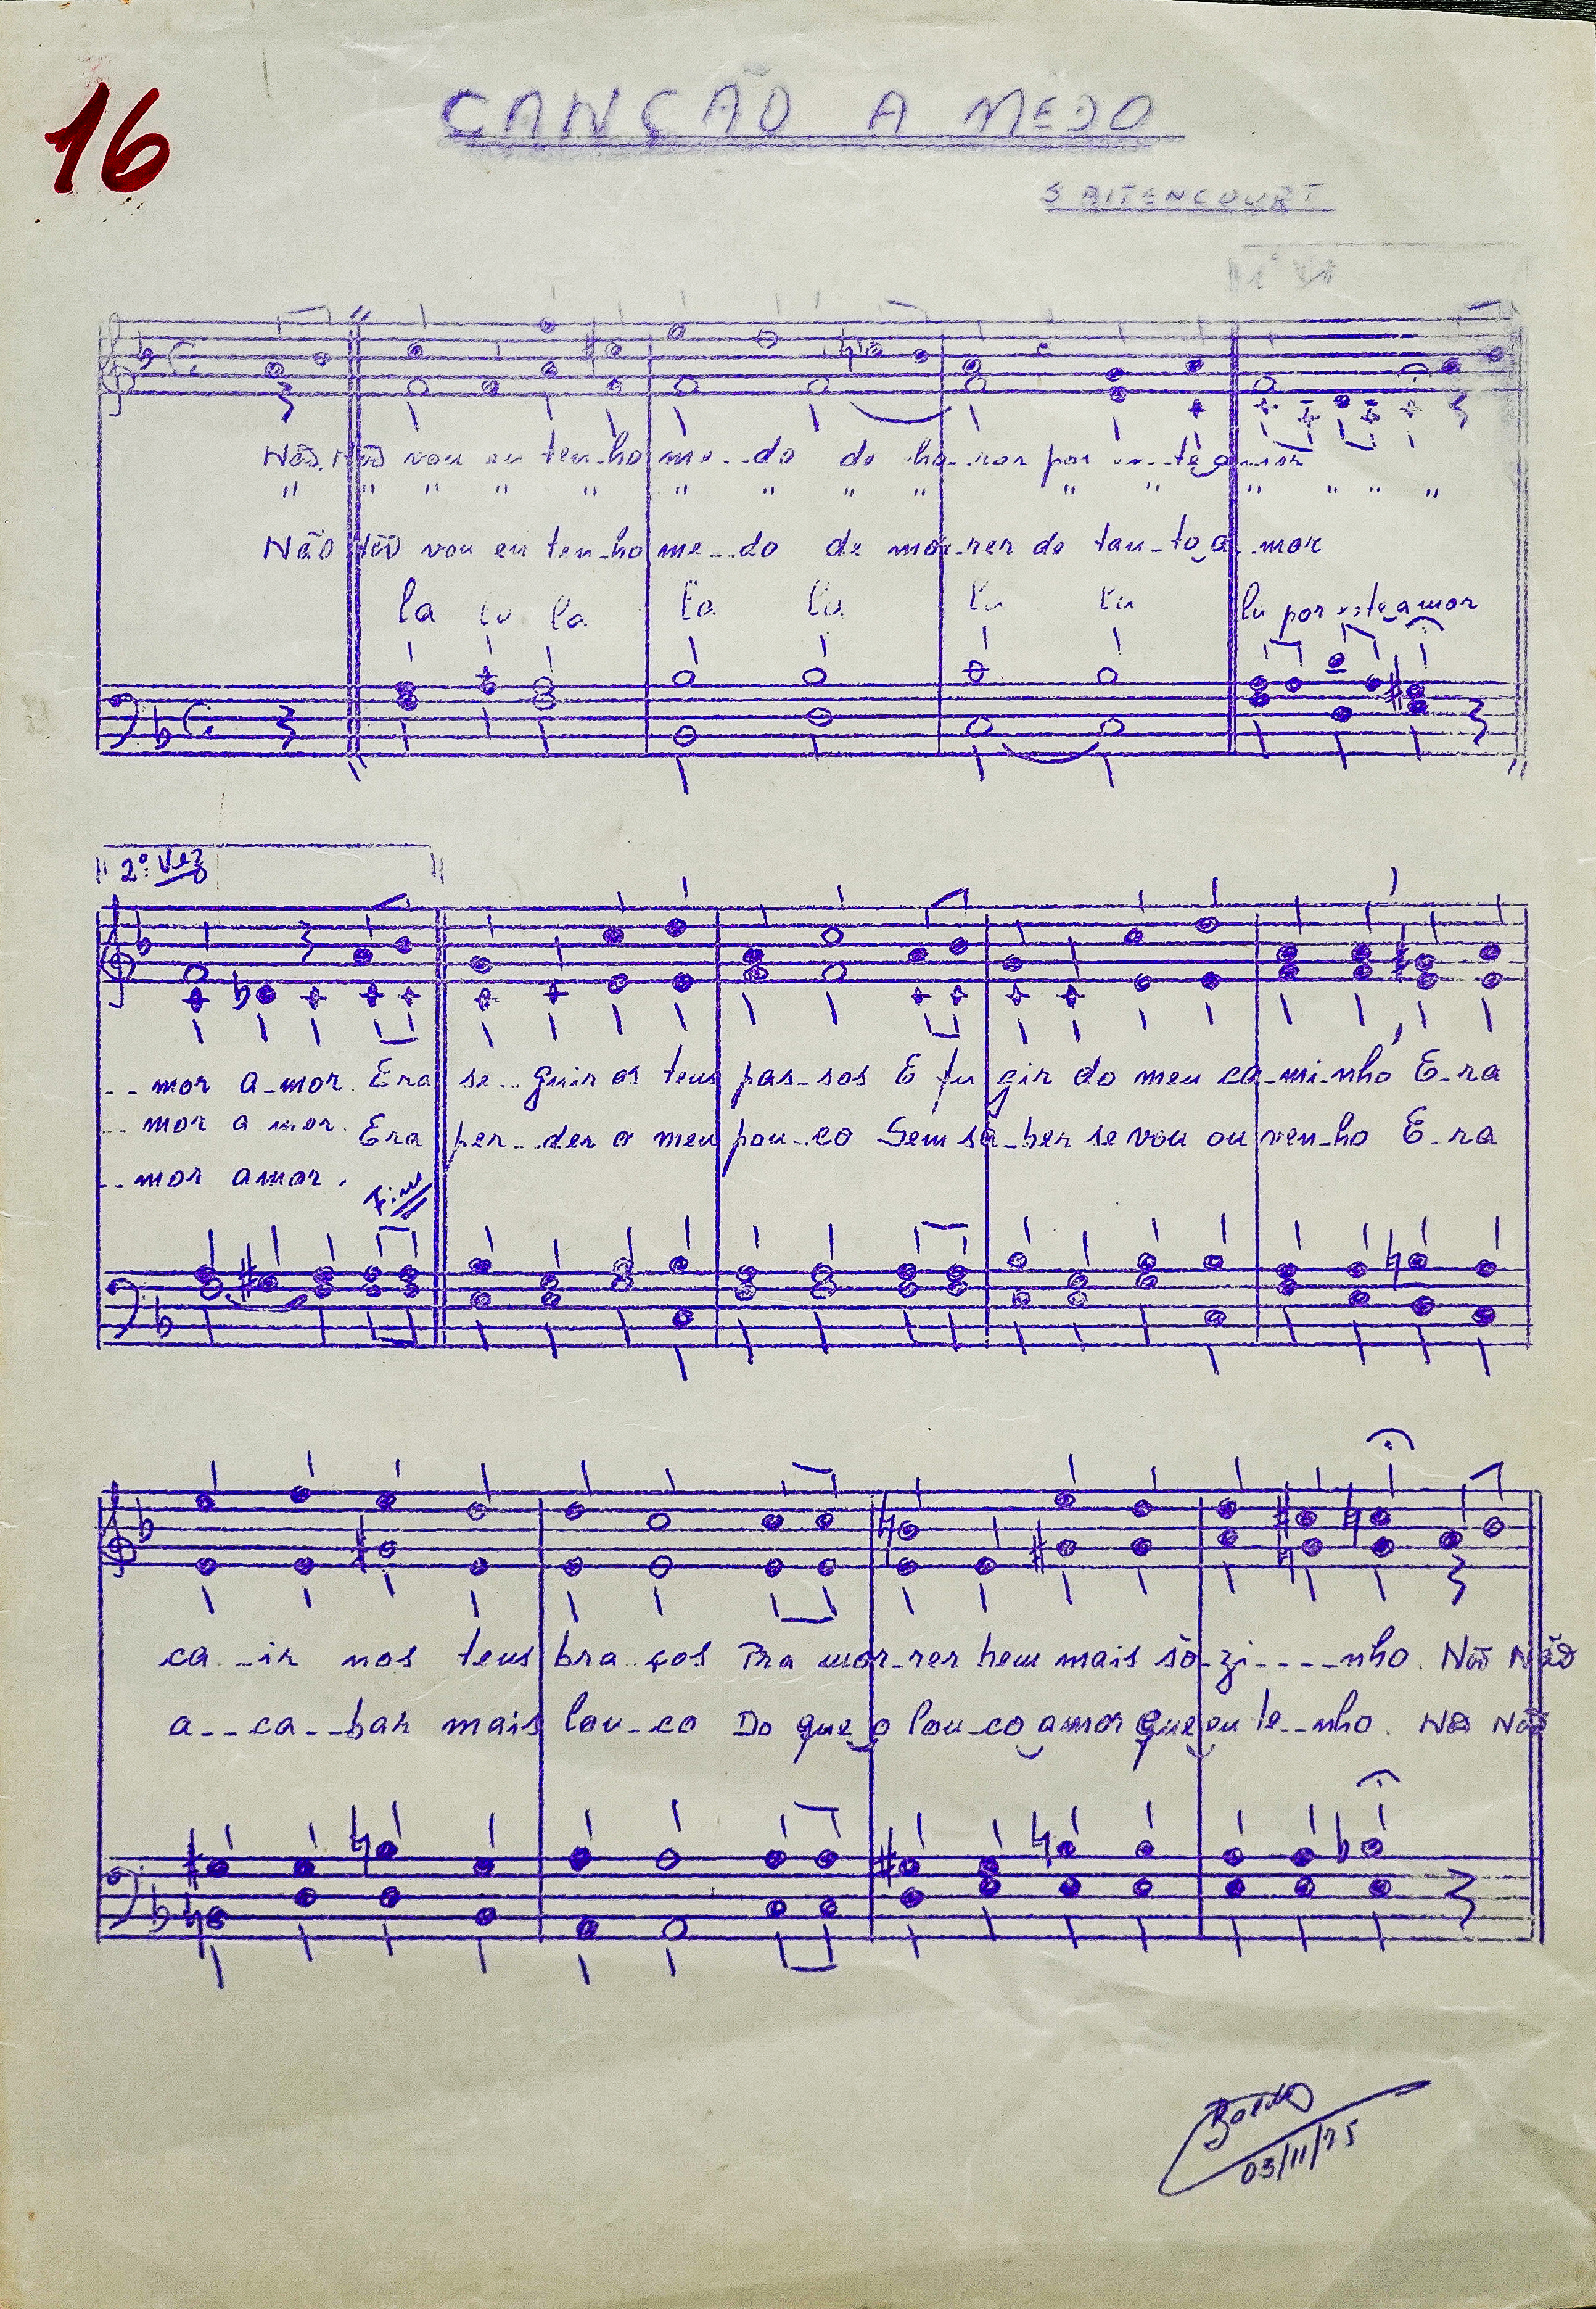 16
CANÇÃO A MEDO
S BITENCOURT
1ª Vez
Não Não vou eu ten-ho me--do de cho-rar por es--te a-mor
" " " " " " " " " " " " " " "
Não Não vou eu ten-ho me--do de mor-rer de tan-to a-mor
la la la la la la la la por este amor
2ª Vez
--mor a-mor. Era se--guir os teus pas-sos E fu gir do meu ca-mi-nho E-ra
--mor a mor. Era per--der o meu pou-co Sem sa-ber se vou ou ven-ho E-ra
--mor amor.
Fim
ca--ir nos teus bra-ços Pra mor-rer bem mais sò-zi----nho. Não Não
a--ca--bar mais lou-co Do que o lou-co amor que eu te--nho. Não Não
03/11/75